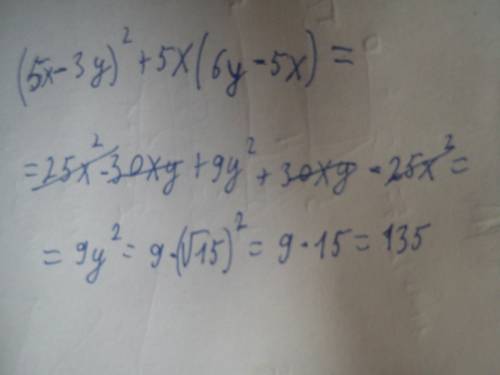 (5x-3y)² + 5x(6y-5x) =
= 25x² - 30xy + 9y² + 30xy - 25x² =
= 9y² = 9·(√15)² = 9·15 = 135